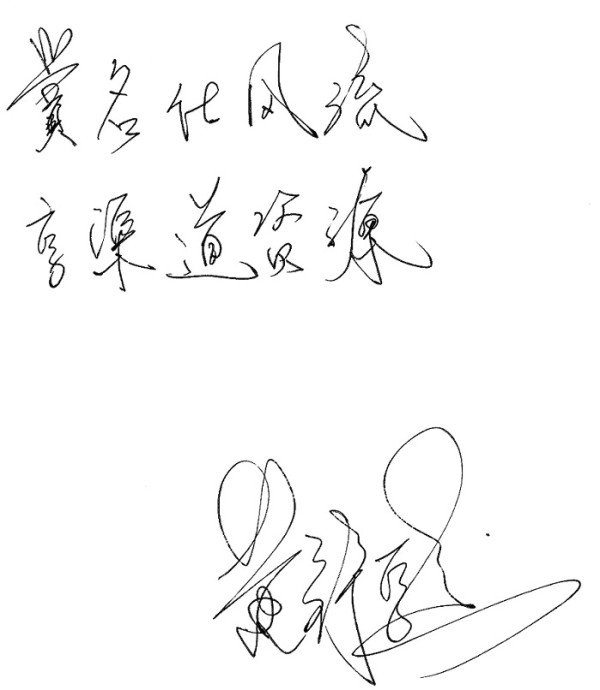 赏名仕风流
享渠道资源